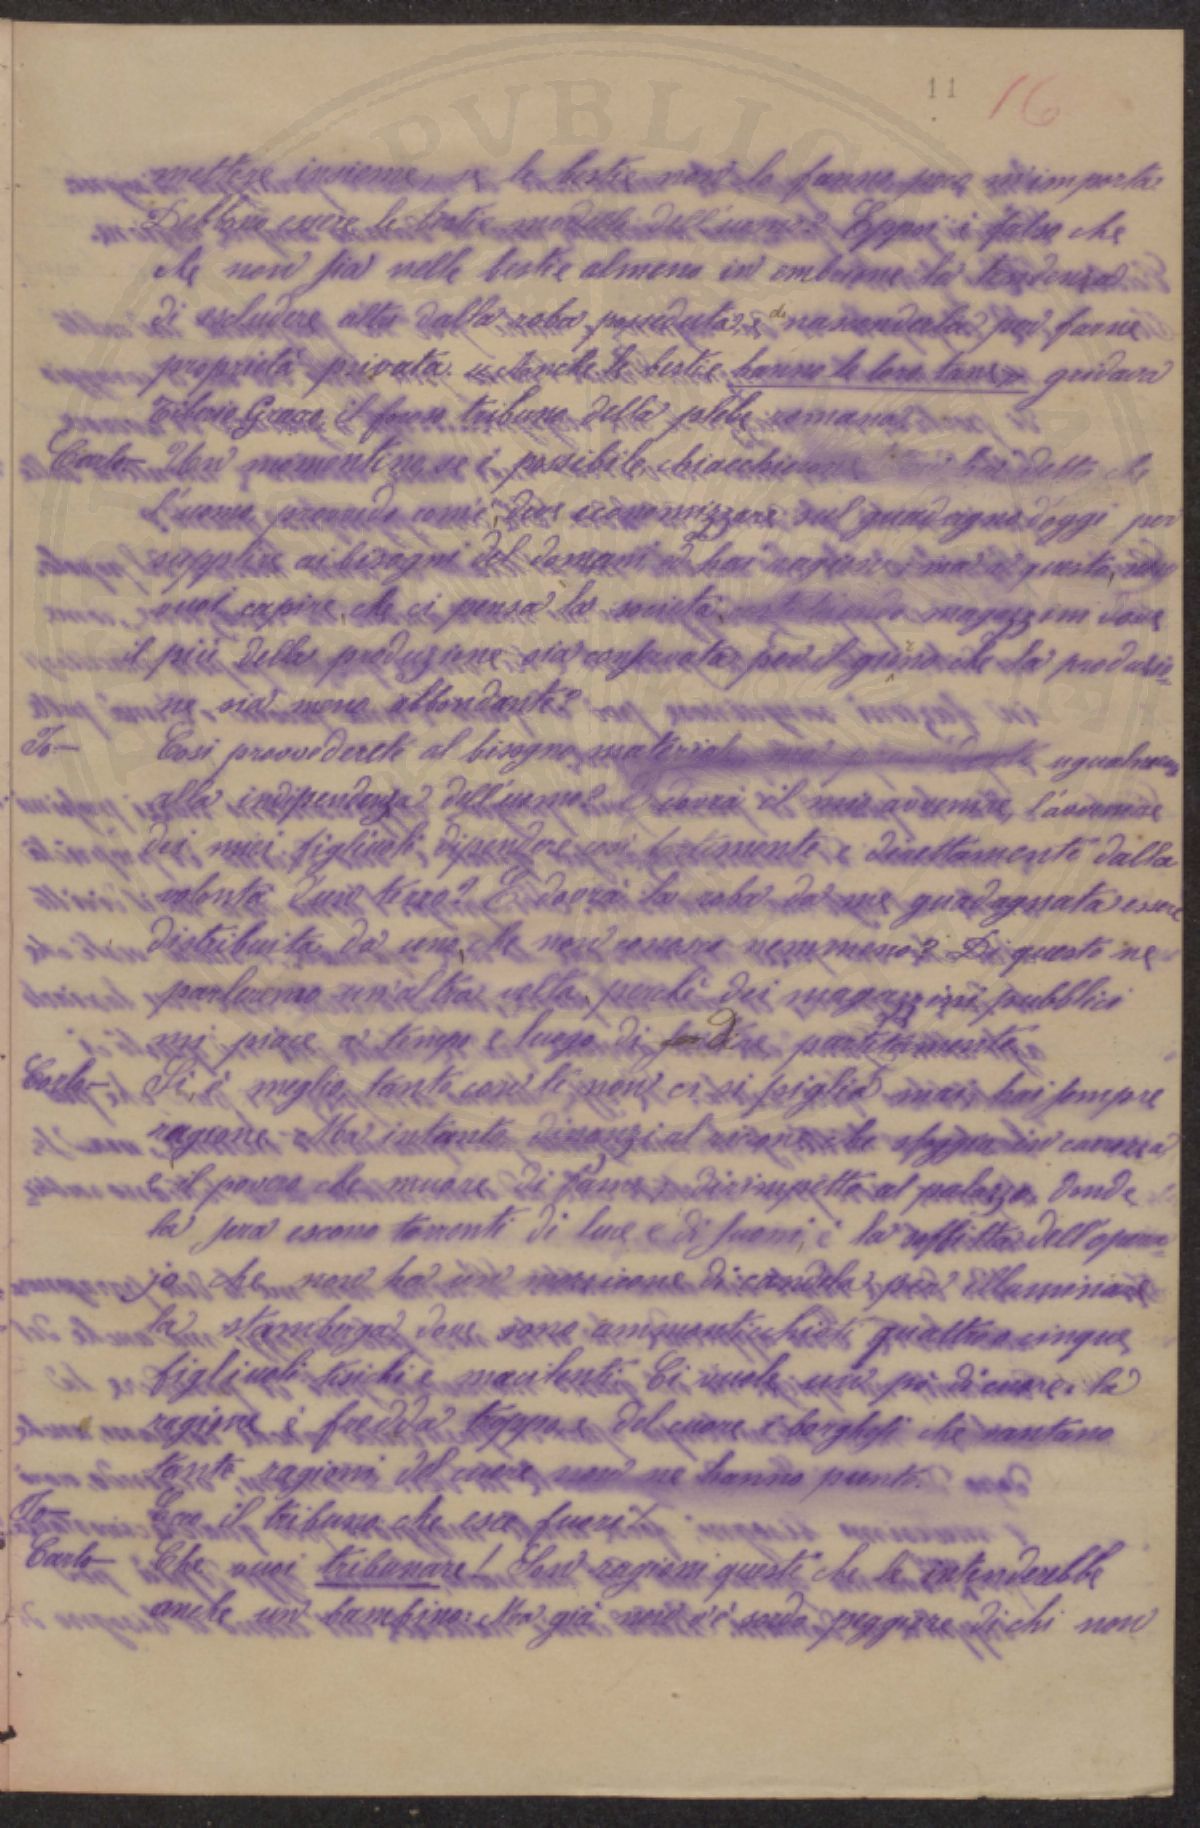 PVBLIC
11 16
mettere insieme, se le bestie non lo fanno poco m'importa.
Debbono essere le bestie modello dell'uomo? Eppoi è falso che
che non sia nelle bestie almeno in embrione la tendenza
di escludere altri dalla roba posseduta, e di nasconderla per farne
proprietà privata. « Anche le bestie hanno le loro tane » gridava
Tiberio Gracco il focoso tribuno della plebe romana.
Carlo — Un momentino se è possibile, chiacchierone. hai detto che
l'uomo previdente com'è, deve economizzare sul guadagno d'oggi per
supplire ai bisogni del domani ed hai ragione; ma a questo, non
vuoi capire, che ci pensa la società, magazzini dove
il più della produzione sia conservata per il giorno che la produzio-
ne sia meno abbondante?
Io — Così provvederete al bisogno materiale ma ugualmente
alla indipendenza dell'uomo? E dovrà il mio avvenire, l'avvenire
dei miei figliuoli, dipendere così e direttamente dalla
volontà d'un terzo? E dovrà la roba da me guadagnata essere
distribuita da uno che non conosco nemmeno? Di questo ne
parleremo un'altra volta, perché dei magazzini pubblici
mi piace a tempo e luogo di partitamente.
Carlo — Sì, è meglio, tanto con te non ci si piglia mai, hai sempre
ragione. Ma intanto dinanzi al riccone che sfoggia in carrozza
è il povero che muore di fame, dirimpetto al palazzo, donde
la sera escono torrenti di luce e di suoni, è la soffitta dell'opera-
jo che non ha un moccicone di candela per illuminare
la stamberga dove sono ammonticchiati quattro o cinque
figliuoli tisichi e macilenti. Ci vuole un po' di cuore: la
ragione è fredda troppo, e del cuore i borghesi che vantano
tante ragioni del cuore non ne hanno punto.
Io — Ecco il tribuno che esce fuori!
Carlo — Che vuoi tribunare! Son ragioni queste che le intenderebbe
anche un bambino. Ma già non v'è sordo peggiore di chi non